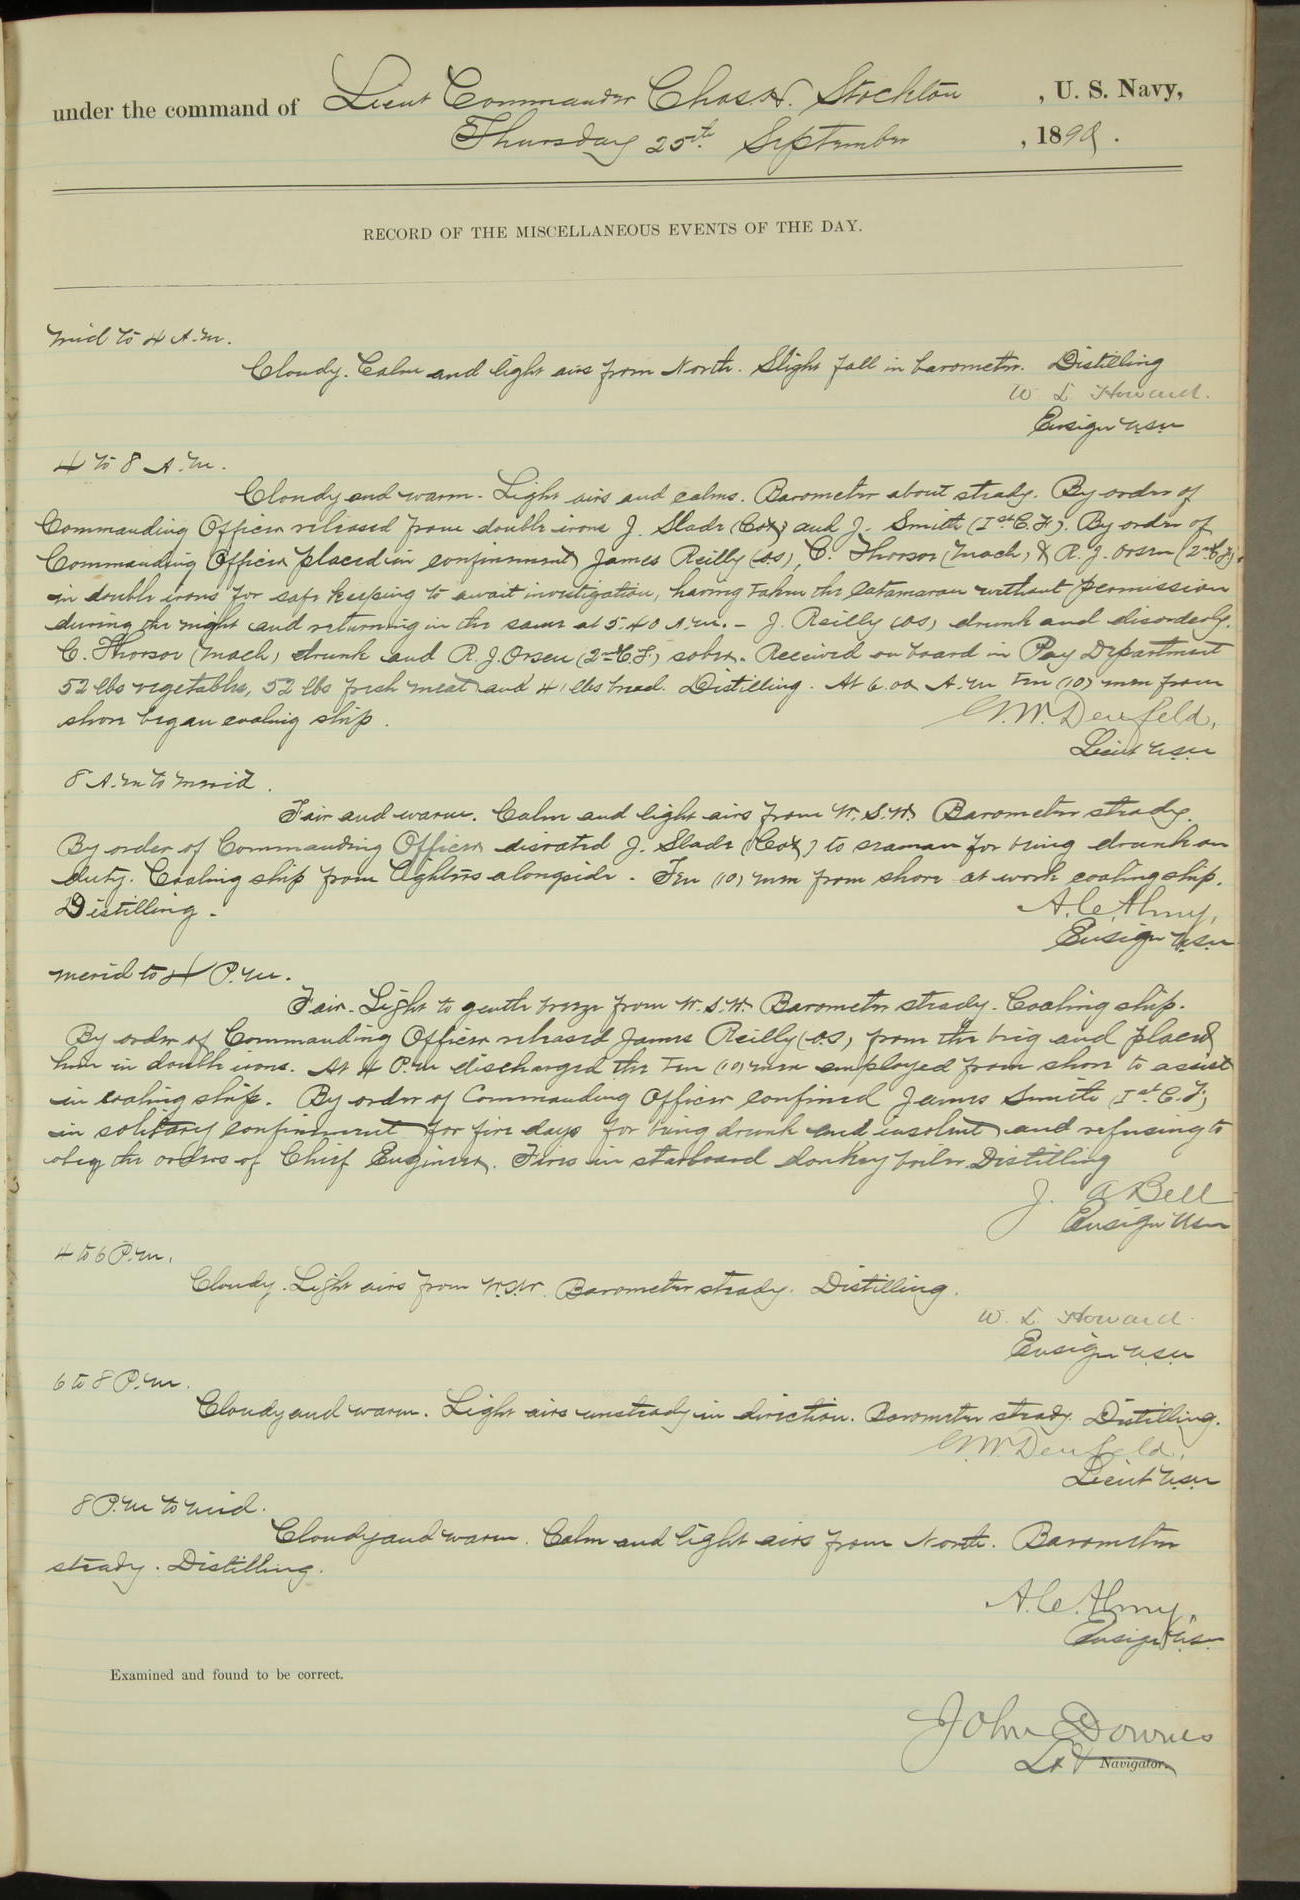 under the command of Lieut Commander Chas. H. Stockton, U. S. Navy,
Thursday 25th September, 1890.
RECORD OF THE MISCELLANEOUS EVENTS OF THE DAY.
Mid to 4 A.M.
Cloudy. Calm and light airs from North. Slight fall in barometer. Distilling
W L Howard.
Ensign USN
4 to 8 A.M.
Cloudy and warm. Light airs and calms. Barometer about steady. By order of
Commanding Officer released from double irons J. Slade (Cox) and J. Smith (1st C.F). By order of
Commanding Officer placed in confinement James Reilly (OS), C. Thorsor (Mach) & R. J. Orsen (2nd C.F)
in double irons for safe keeping to await investigation, having taken the Catamaran without permission
during the night and returning in the same at 5.40 A.M. - J. Reilly (OS) drunk and disorderly.
C. Thorsor (Mach) drunk and R. J. Orsen (2nd C.F.) sober. Received on board in Pay Department
52 lbs vegetables, 52 lbs fresh meat and 41 lbs bread. Distilling. At 6.00 A.M Ten (10) men from
shore began coaling ship.
G. W. Denfeld,
Lieut USN
8 A.M to Merid.
Fair and warm. Calm and light airs from W.S.W. Barometer steady.
By order of Commanding Officer disrated J. Slade (Cox) to seaman for being drunk on
duty. Coaling ship from lighters alongside. Ten (10) men from shore at work coaling ship.
Distilling.
A. C. Almy,
Ensign USN
Merid to 4 P.M.
Fair. Light to gentle breeze from W.S.W. Barometer steady. Coaling ship.
By order of Commanding Officer released James Reilly (O.S) from the brig and placed
him in double irons. At 4 P.M discharged the Ten (10) men employed from shore to assist
in coaling ship. By order of Commanding Officer confined James Smith (1st C.F)
in solitary confinement for five days for being drunk and insolent and refusing to
obey the orders of Chief Engineer. Fires in starboard donkey boiler. Distilling
J. A Bell
Ensign USN
4 to 6 P.M.
Cloudy. Light airs from W.S.W. Barometer steady. Distilling.
W. L Howard.
Ensign USN
6 to 8 P.M.
Cloudy and warm. Light airs unsteady in direction. Barometer steady. Distilling.
G. W. Denfeld,
Lieut USN
8 P.M to Mid.
Cloudy and warm. Calm and light airs from North. Barometer
steady. Distilling.
A. C. Almy,
Ensign USN
Examined and found to be correct.
John Downes
Lt Navigator.